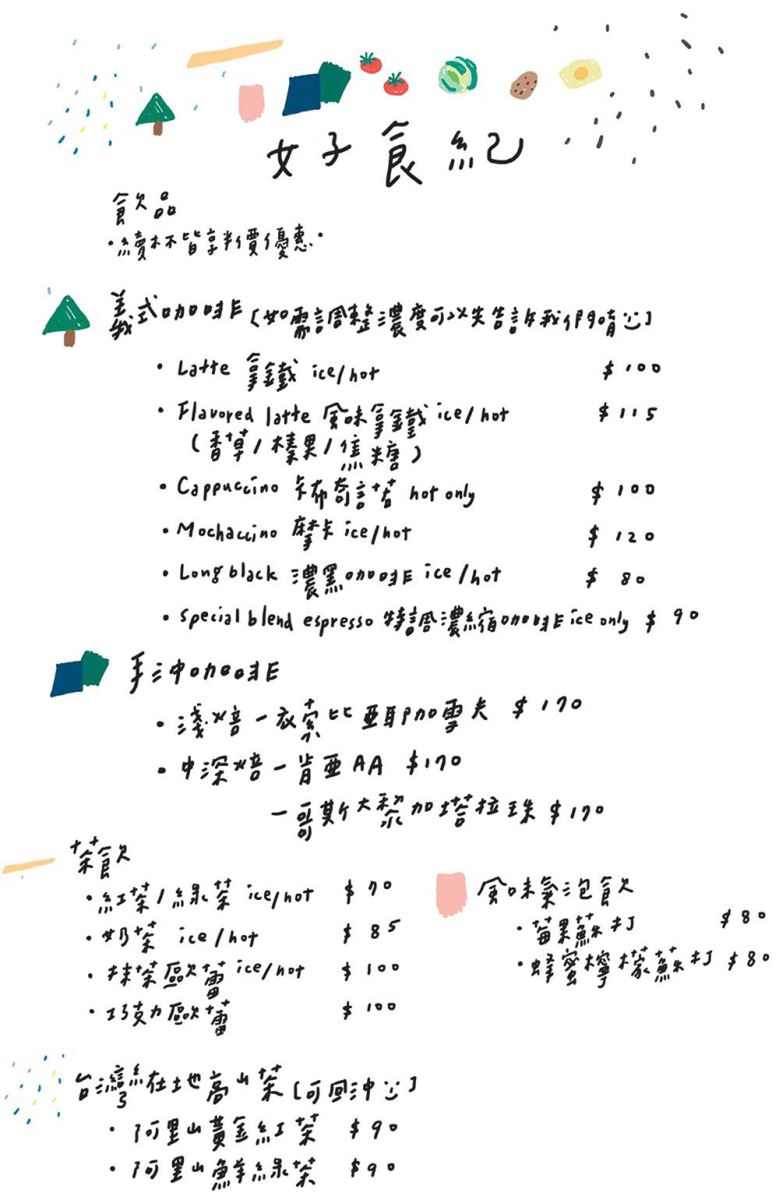 好食紀
飲品
·續杯皆享半價優惠·
義式咖啡 [如需調整濃度可以先告訴我們唷:)]
· Latte 拿鐵 ice/hot $100
· Flavored latte 風味拿鐵 ice/hot $115
(香草/榛果/焦糖)
· Cappuccino 卡布奇諾 hot only $100
· Mochaccino 摩卡 ice/hot $120
· Long black 濃黑咖啡 ice/hot $80
· special blend espresso 特調濃縮咖啡 ice only $90
手沖咖啡
· 淺焙-衣索比亞耶加雪夫 $170
· 中深焙-肯亞AA $170
-哥斯大黎加塔拉珠 $170
茶飲
· 紅茶/綠茶 ice/hot $70
· 奶茶 ice/hot $85
· 抹茶歐蕾 ice/hot $100
· 巧克力歐蕾 $100
風味氣泡飲
· 莓果蘇打 $80
· 蜂蜜檸檬蘇打 $80
台灣在地高山茶 [可回沖:)]
· 阿里山黃金紅茶 $90
· 阿里山鮮綠茶 $90